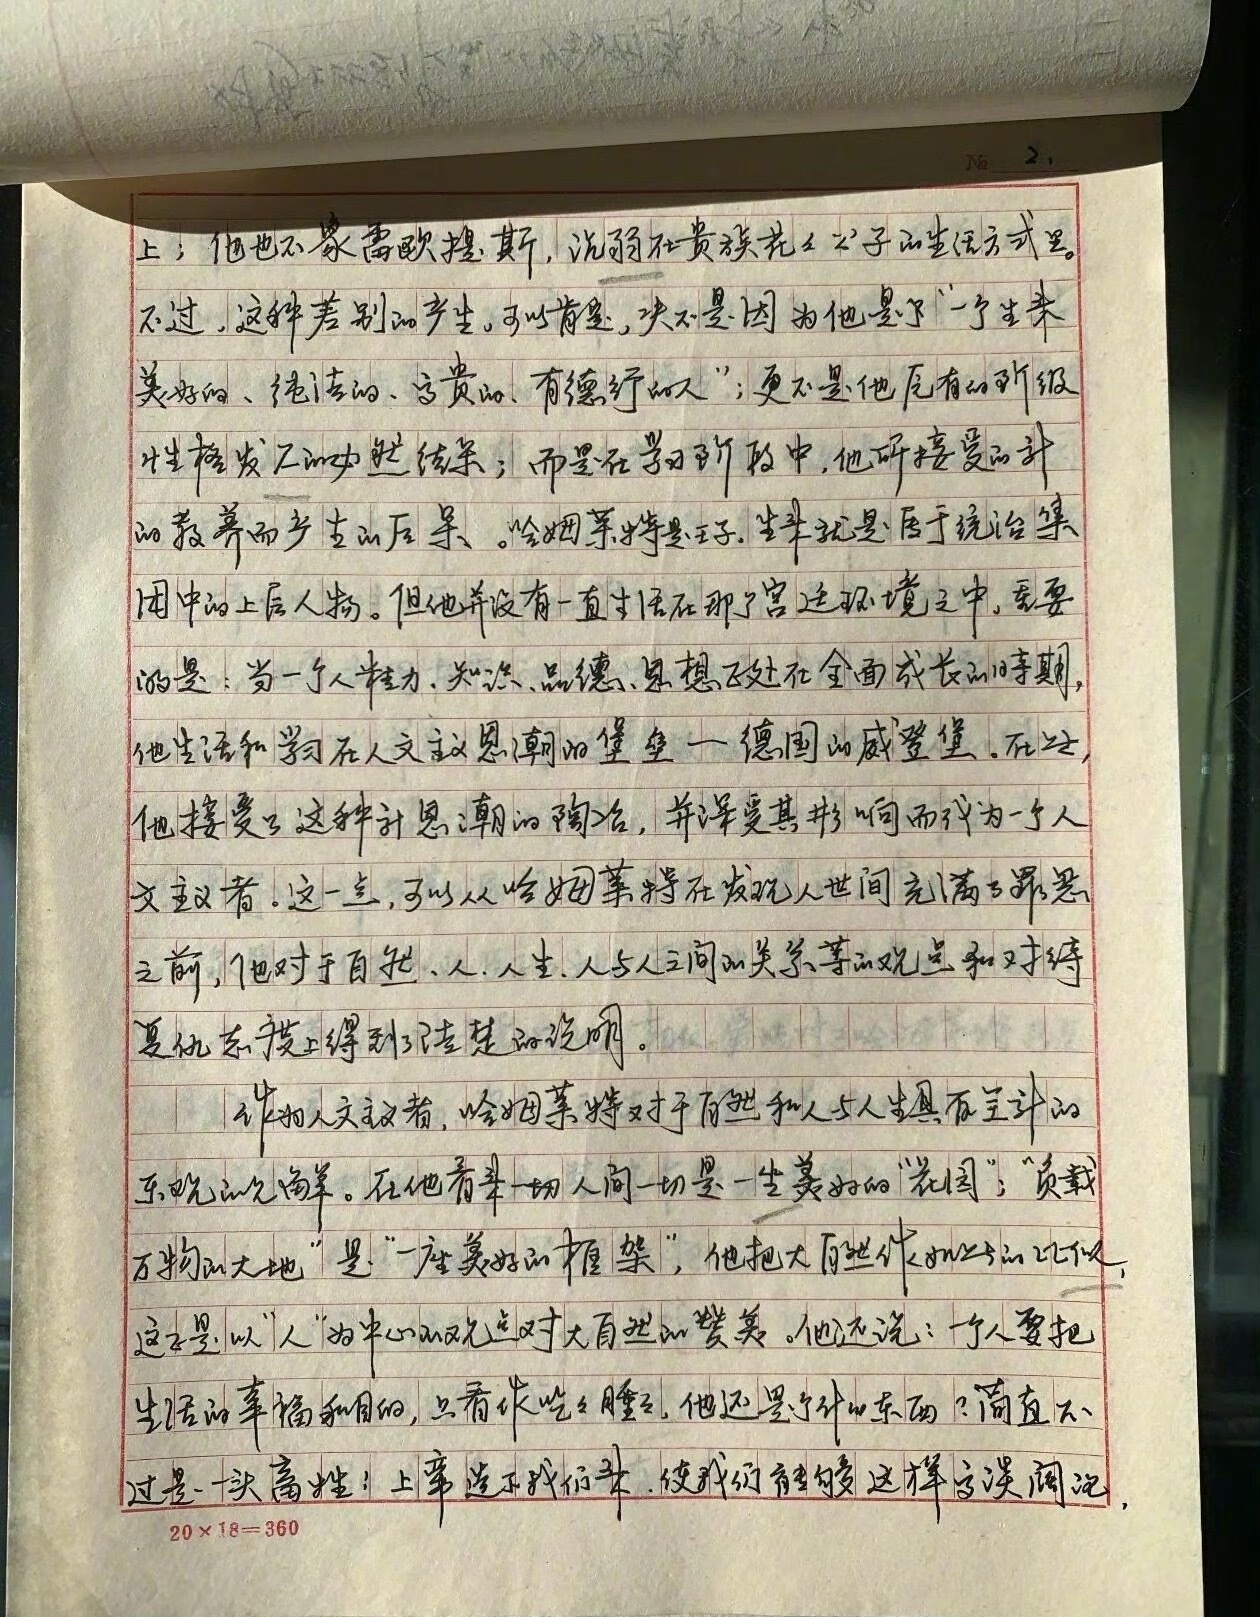 № 2.
上；他也不象雷欧提斯，沉溺在贵族花々公子的生活方式里。
不过，这种差别的产生，可以肯定，决不是因为他是个“一个生来
美好的、纯洁的、高贵的、有德行的人”；更不是他原有的阶级
性格发展的必然结果；而是在学习阶段中，他所接受的新
的教养而产生的后果。哈姆莱特是王子，生来就是属于统治集
团中的上层人物。但他并没有一直生活在那个宫廷环境之中，重要
的是：当一个人精力、知识、品德、思想正处在全面成长的时期，
他生活和学习在人文主义思潮的堡垒一德国的威登堡。在这，
他接受了这种新思潮的陶冶，并深受其影响而成为一个人
文主义者。这一点，可以从哈姆莱特在发现人世间充满了罪恶
之前，他对于自然、人、人生、人与人之间的关系等的观点和对待
复仇态度上得到了清楚的说明。
作为人文主义者，哈姆莱特对于自然和人与人生具有全新的
乐观的见解。在他看来一切人间一切是一座美好的“花园”；“负载
万物的大地”是“一座美好的框架”，他把大自然作如此的比似，
这正是以“人”为中心的观点对大自然的赞美。他还说：一个人要把
生活的幸福和目的，只看作吃々睡々，他还是个什么东西？简直不
过是一头畜牲！上帝造下我们来，使我们能够这样高谈阔论，
20×18=360